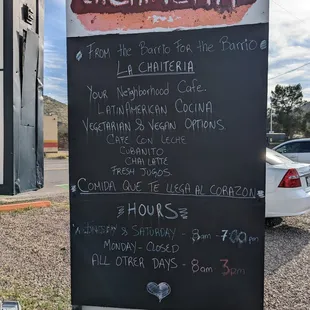 From the Barrio For the Barrio
La Chaiteria
Your Neighborhood Cafe.
Latin American Cocina
Vegetarian & Vegan Options
Cafe con Leche
Cubanito
Chai Latte
Fresh Jugos
Comida que te llega al corazon
Hours
& Saturday - 8am - 7:00pm
Monday - Closed
All Other Days - 8am 3pm